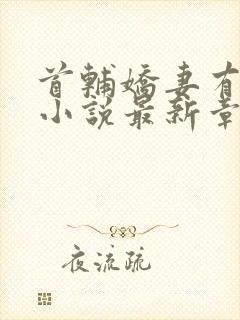 首輔嬌妻有
小說最新章
夜流疏